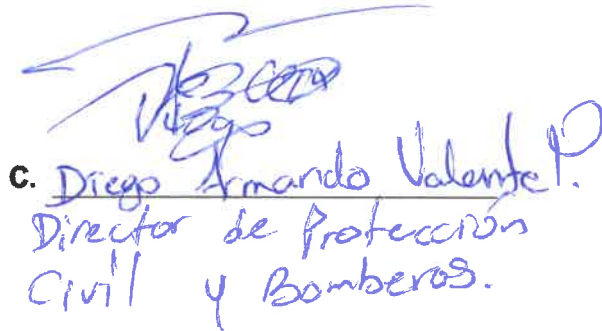 Diego
C. Diego Armando Valente P.
Director de Protección
Civil y Bomberos.